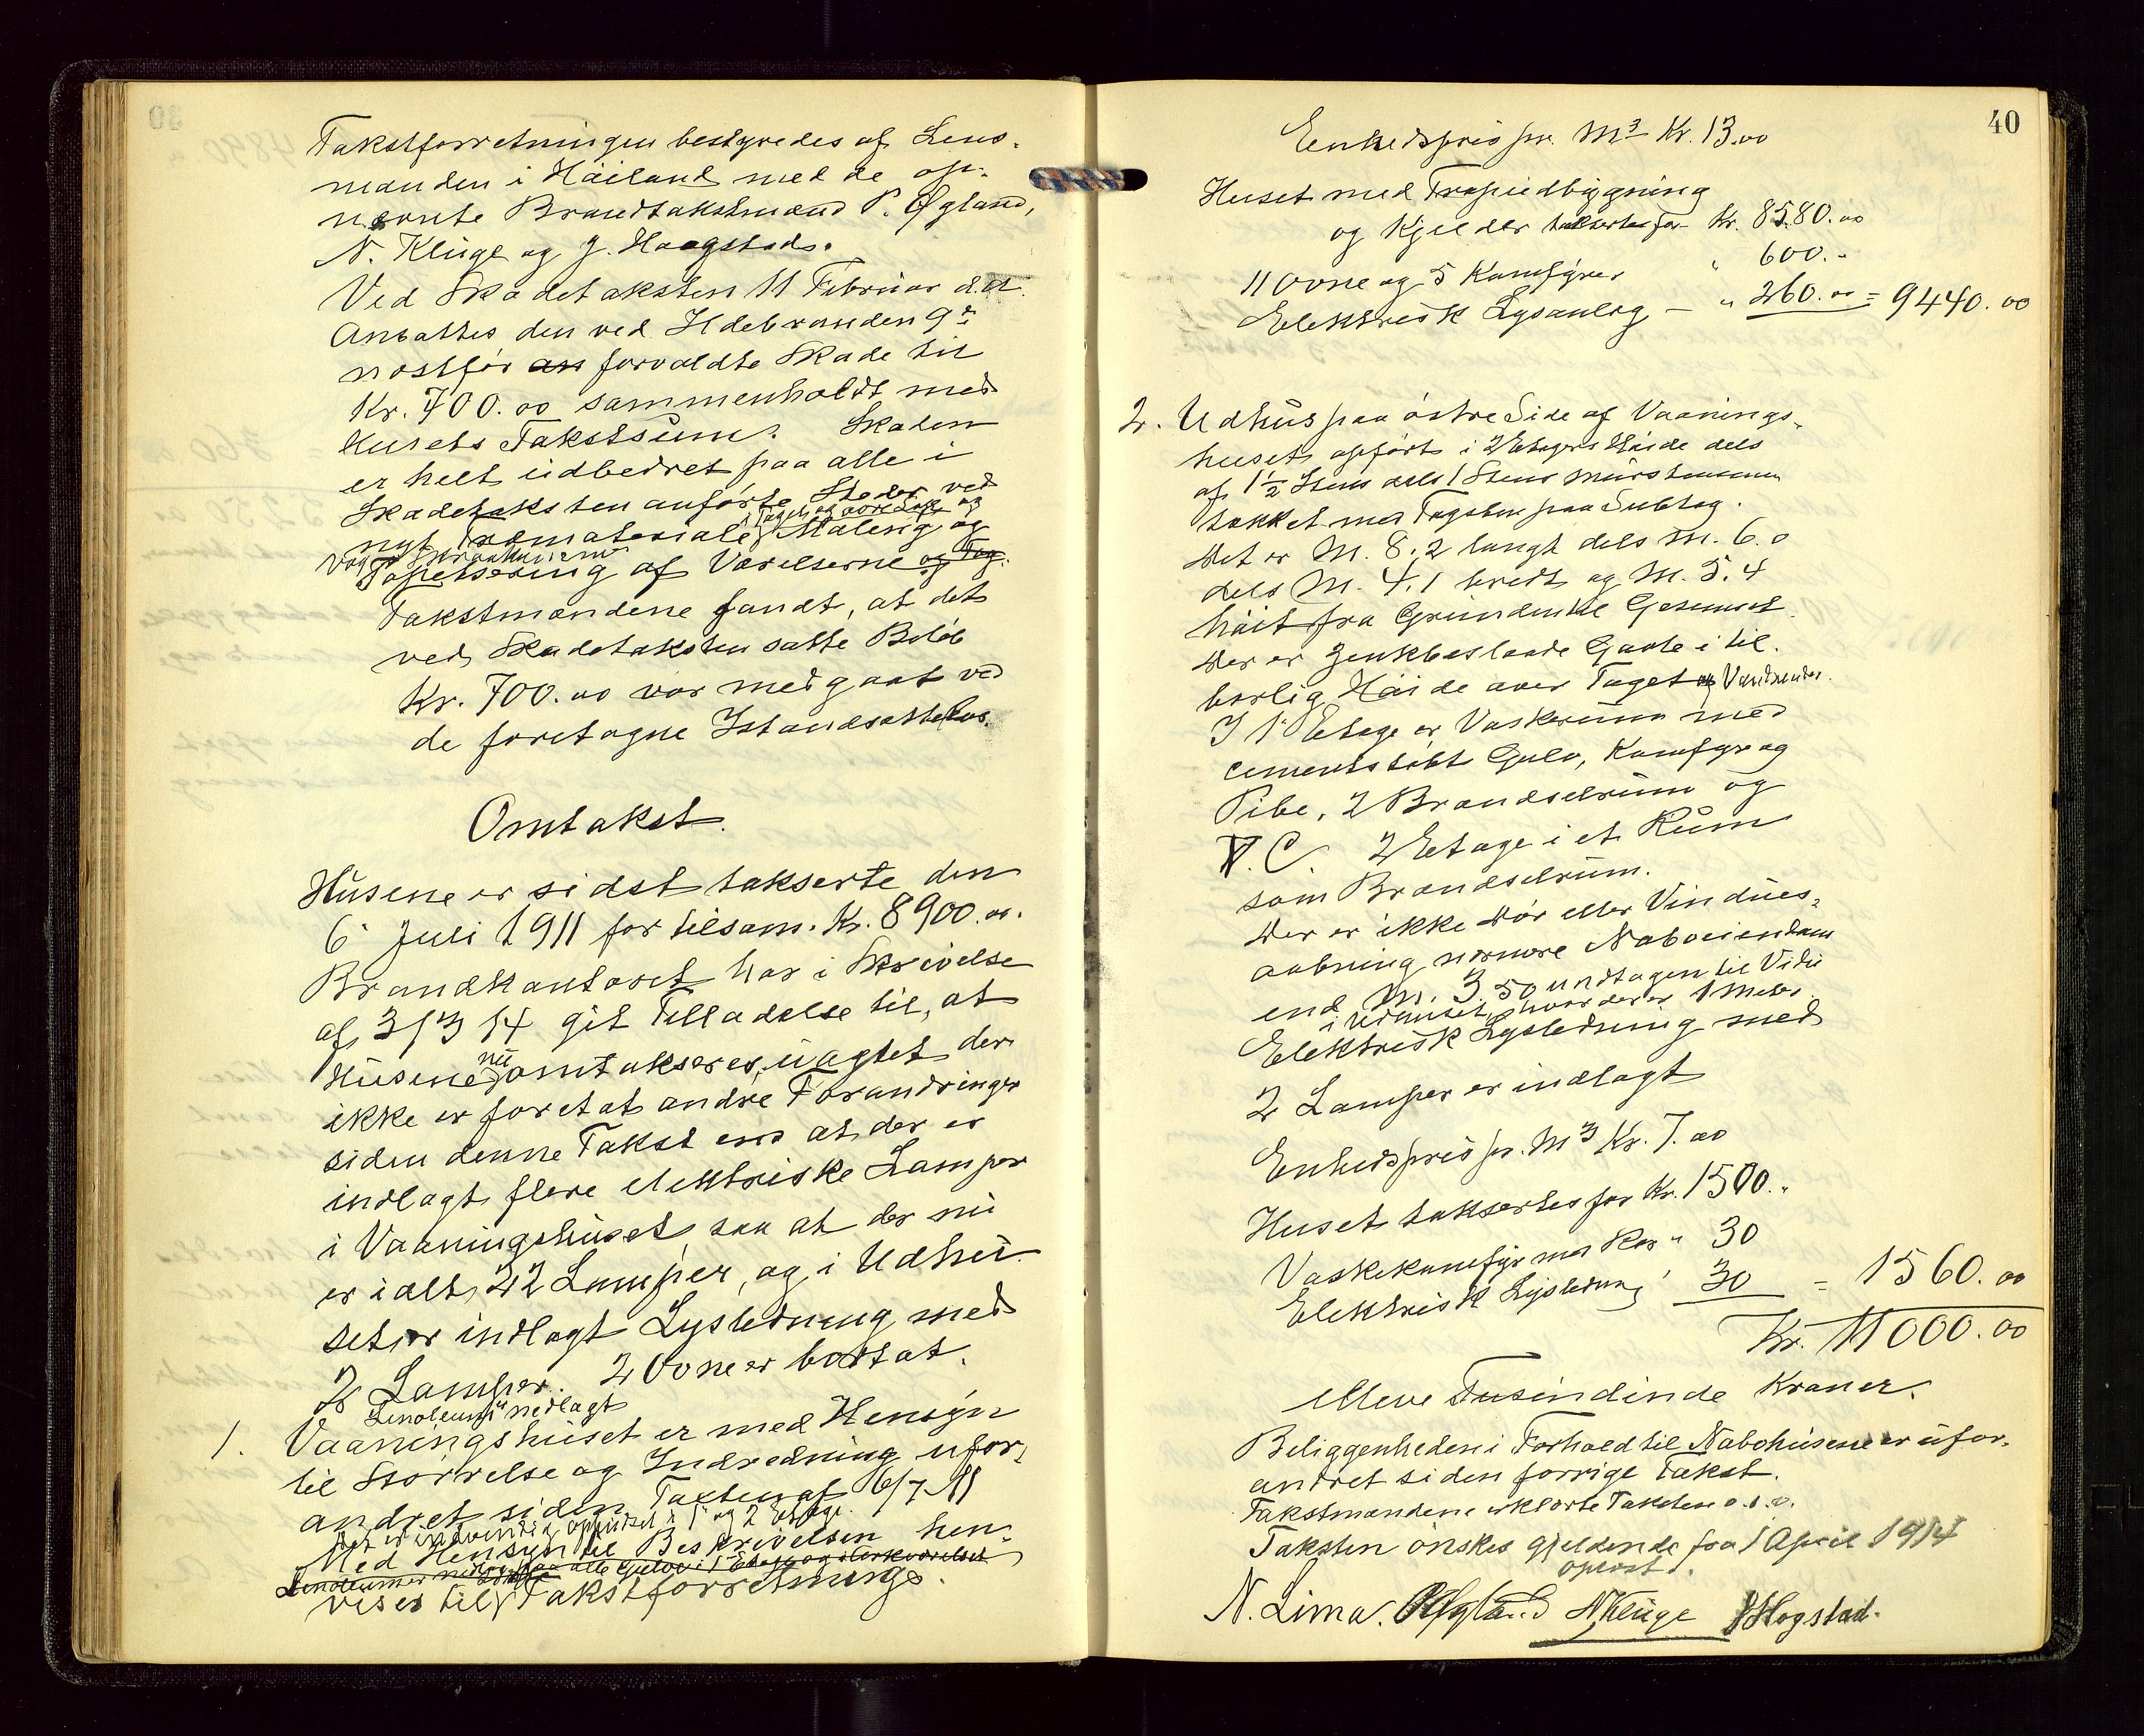 Takstforretningen bestyredes af Lens-
manden i Håiland med de op-
nævnte Brandtakstmænd P. Øgland,
N. Kluge og J. Haagstad.
Ved Skadetaksten 11 Februar d.A.
Ansattes den ved Ildebranden 9de
nestfør an forvoldte Skade til
Kr. 700.00 sammenholdt med
Husets Takstsum. Skaden
er helt udbedret paa alle i
Skadetaksten anførte Steder ved
nyt Træmateriale, Maling og
Tapetsering af Værelserne og Tag.
Takstmændene fandt, at det
ved Skadetaksten satte Beløb
Kr. 700.00 var medgaat ved
de foretagne Istandsættelser.
Omtakst.
Husene er sidst takserte den
6 Juli 1911 for tilsam. Kr. 8900.00.
Brandkontoret har i Skrivelse
af 31/3 14 git Tilladelse til, at
Husene nu omtakseres, uagtet der
ikke er foretat andre Forandringer
siden denne Takst end at der er
indlagt flere elektriske Lamper
i Vaaningshuset saa at der nu
er ialt 22 Lamper, og i Udhu-
set er indlagt Lysledning med
2 Lamper. 2 Ovne er borttat.
Linoleum nedlagt
1. Vaaningshuset er med Hensyn
til Størrelse og Indredning ufor-
andret siden Taksten af 6/7 11
Det er indvendig oppudset i 1 og 2 Etage.
Med Hensyn til Beskrivelsen hen-
Linoleumer nedlagt paa alle Gulve i 1 Etage og
vises til Takstforretninge.
40
Eenhedspris pr. M3 Kr. 13.00
Huset med Trapiedbygning
og Kjelder takseertes for Kr. 8580.00
11 Ovne og 5 Kamfyrer " 600.-
Elektrisk Lysanlæg - " 260.00 = 9440.00
2. Udhus paa østre Side af Vaanings-
huset, opført i 2 Etagers Høide dels
af 1 1/2 Stens dels 1 Stens Murstensmur
tækket med Tagsten paa Subtag.
Det er M. 8.2 langt dels M. 6.0
dels M. 4.1 bredt og M. 5.4
høit fra Grunden til Gesimset.
Der er zenkbeslaade Gavle i til-
børlig Høide over Taget og Vandrender.
I 1 Etage er Vaskerum med
cementstøbt Gulv, Kamfyr og
Pibe, 2 Brændselrum og
V.C. 2 Etage i et Rum
som Brændselrum.
Der er ikke Dør eller Vindues-
aabning nærmere Naboeiendom
end M. 3.50 undtagen til Vidie
i Udhuset, hvor der er 1 Meter
Elektrisk Lysledning med
2 Lamper er indlagt
Enhedspris pr. M3 Kr. 7.00
Huset taksertes for Kr. 1500.-
Vaskekamfyr med Rør " 30
Elektrisk Lysledning " 30 = 1560.00
Kr. 11000.00
elleve Tusindinde Kroner.
Beliggenheden i Forhold til Nabohusene er ufor-
andret siden forrige Takst.
Takstmændene erklærte Taksten o.s.v.
Taksten ønskes gjeldende fra 1 April 1914
Oplæst.
N. Lima. P Øgland N Kluge J Hogstad.